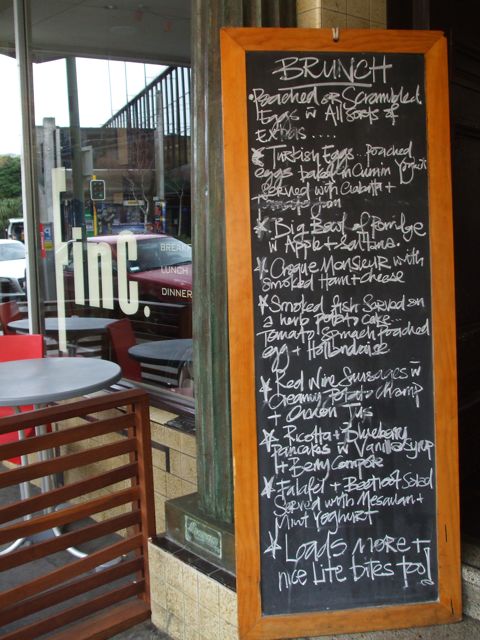 finc.
BREAK
LUNCH
DINNER
BRUNCH
Poached or Scrambled
Eggs w All sorts of
extras ....
Turkish Eggs.. Poached
eggs baked in Cumin Yogurt
served with Ciabatta +
Jam
Big Bowl of Porridge
w Apple + Sultana.
Croque Monsieur with
smoked Ham + cheese
Smoked fish Served on
a herb potato cake...
Tomato Spinach + poached
egg + Hollandaise
Red Wine Sausages w
Creamy Potato Champ
+ Onion Jus
Ricotta + Blueberry
Pancakes w Vanilla syrup
+ Berry Compote
Falafel + Beetroot Salad
Served with Mesculan +
Mint Yoghurt
Loads more +
nice Lite bites too!